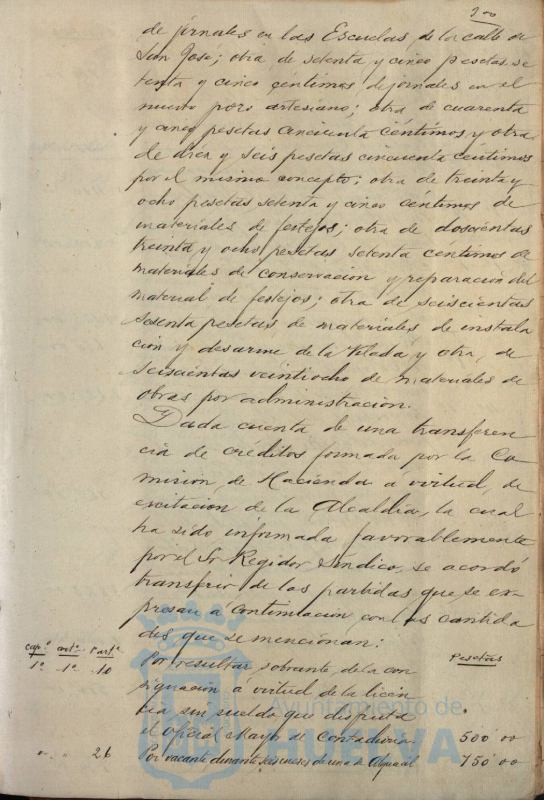 200
de jornales en las Escuelas de la calle de
San José; otra de setenta y cinco pesetas se
tenta y cinco céntimos de jornales en el
nuevo pozo artesiano; otra de cuarenta
y cinco pesetas cincuenta céntimos y otra
de diez y seis pesetas cincuenta céntimos
por el mismo concepto; otra de treinta y
ocho pesetas setenta y cinco céntimos de
materiales de festejos; otra de doscientas
treinta y ocho pesetas setenta céntimos de
materiales de conservacion y reparación del
material de festejos; otra de seiscientas
sesenta pesetas de materiales de instala
cion y desarme de la Velada y otra, de
seiscientas veintiocho de materiales de
obras por administracion.
Dada cuenta de una transferen
cia de créditos formada por la Co
mision de Hacienda á virtud de
escitacion de la Alcaldia, la cual
ha sido informada favorablemente
por el Sr Regidor Sindico, se acordó
transferir de las partidas que se ex
presan á continuacion con las cantida
des que se mencionan:
cap.º artº. partª. Pesetas
1º 1º 10 Por resultar sobrante, de la con
signacion á virtud de la licen
cia sin sueldo que disfruta
el Oficial Mayor de Contaduria. 500'00
" " 26 Por vacante durante seis meses de una de Alguacil 750'00
Ayuntamiento de
HUELVA